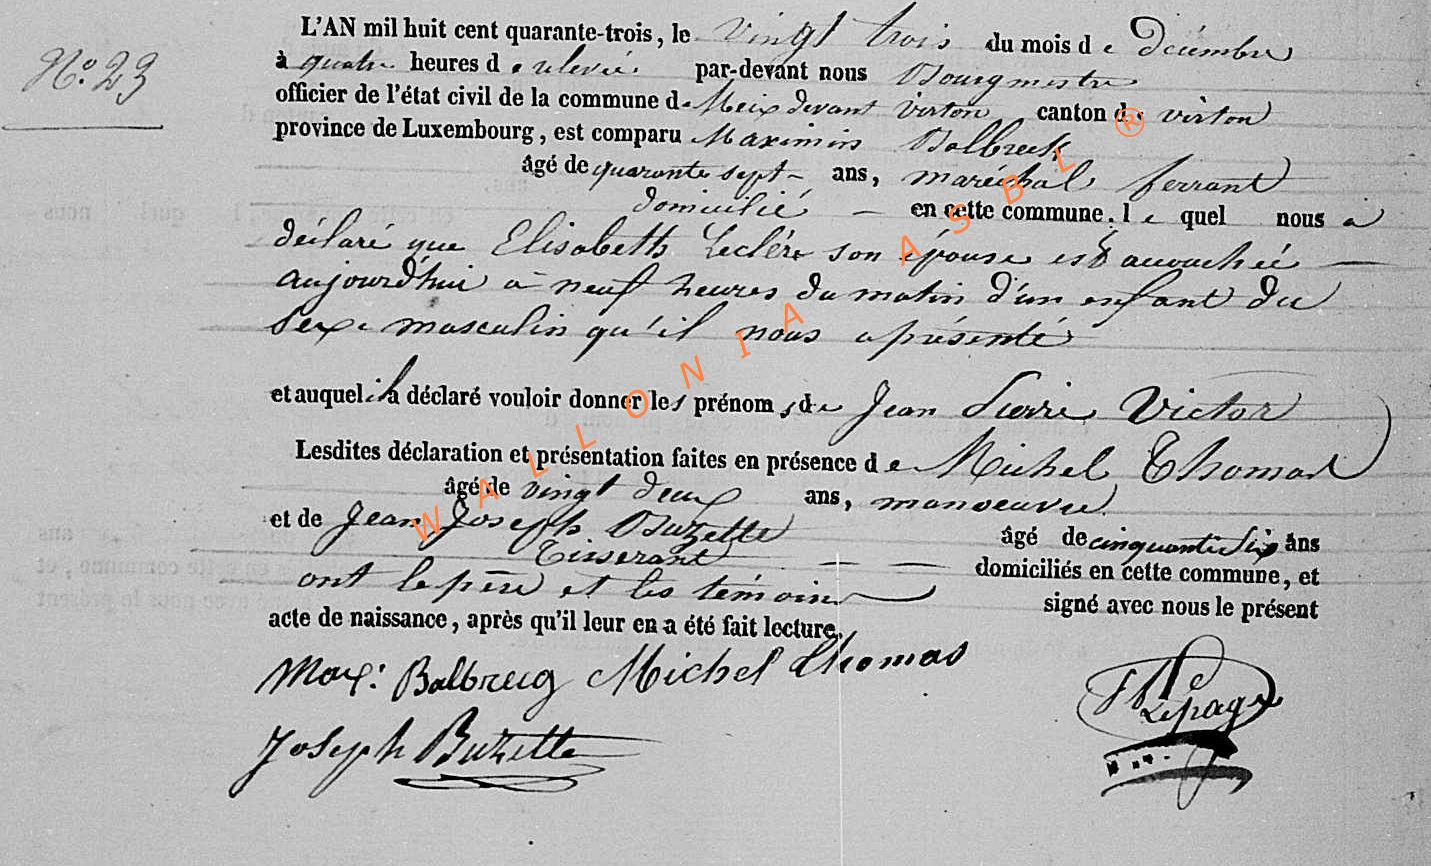 L'AN mil huit cent quarante-trois, le vingt trois du mois de Décembre
N.o 23
à quatre heures de relevée. par-devant nous Bourgmestre
officier de l'état civil de la commune de Meix devant virton canton de virton
province de Luxembourg, est comparu Maximin Balbreck
âgé de quarante sept ans, maréchal ferrant
domicilié — en cette commune. le quel nous a
déclaré que Elisabeth Leclére son épouse est accouchée —
aujourd'hui à neuf heures du matin d'un enfant du
sexe masculin qu'il nous a présenté
et auquel il a déclaré vouloir donner les prénoms de Jean Pierre Victor
Lesdites déclaration et présentation faites en présence de Michel Thomas
âgé de vingt deux ans, manoeuvre
et de Jean Joseph Buzette âgé de cinquante six ans
Tisserant — — domiciliés en cette commune, et
ont le père et les témoins signé avec nous le présent
acte de naissance, après qu'il leur en a été fait lecture.
Max: Balbreug Michel Thomas
Lepage
Joseph Buzette
WALLONIA ASBL ®